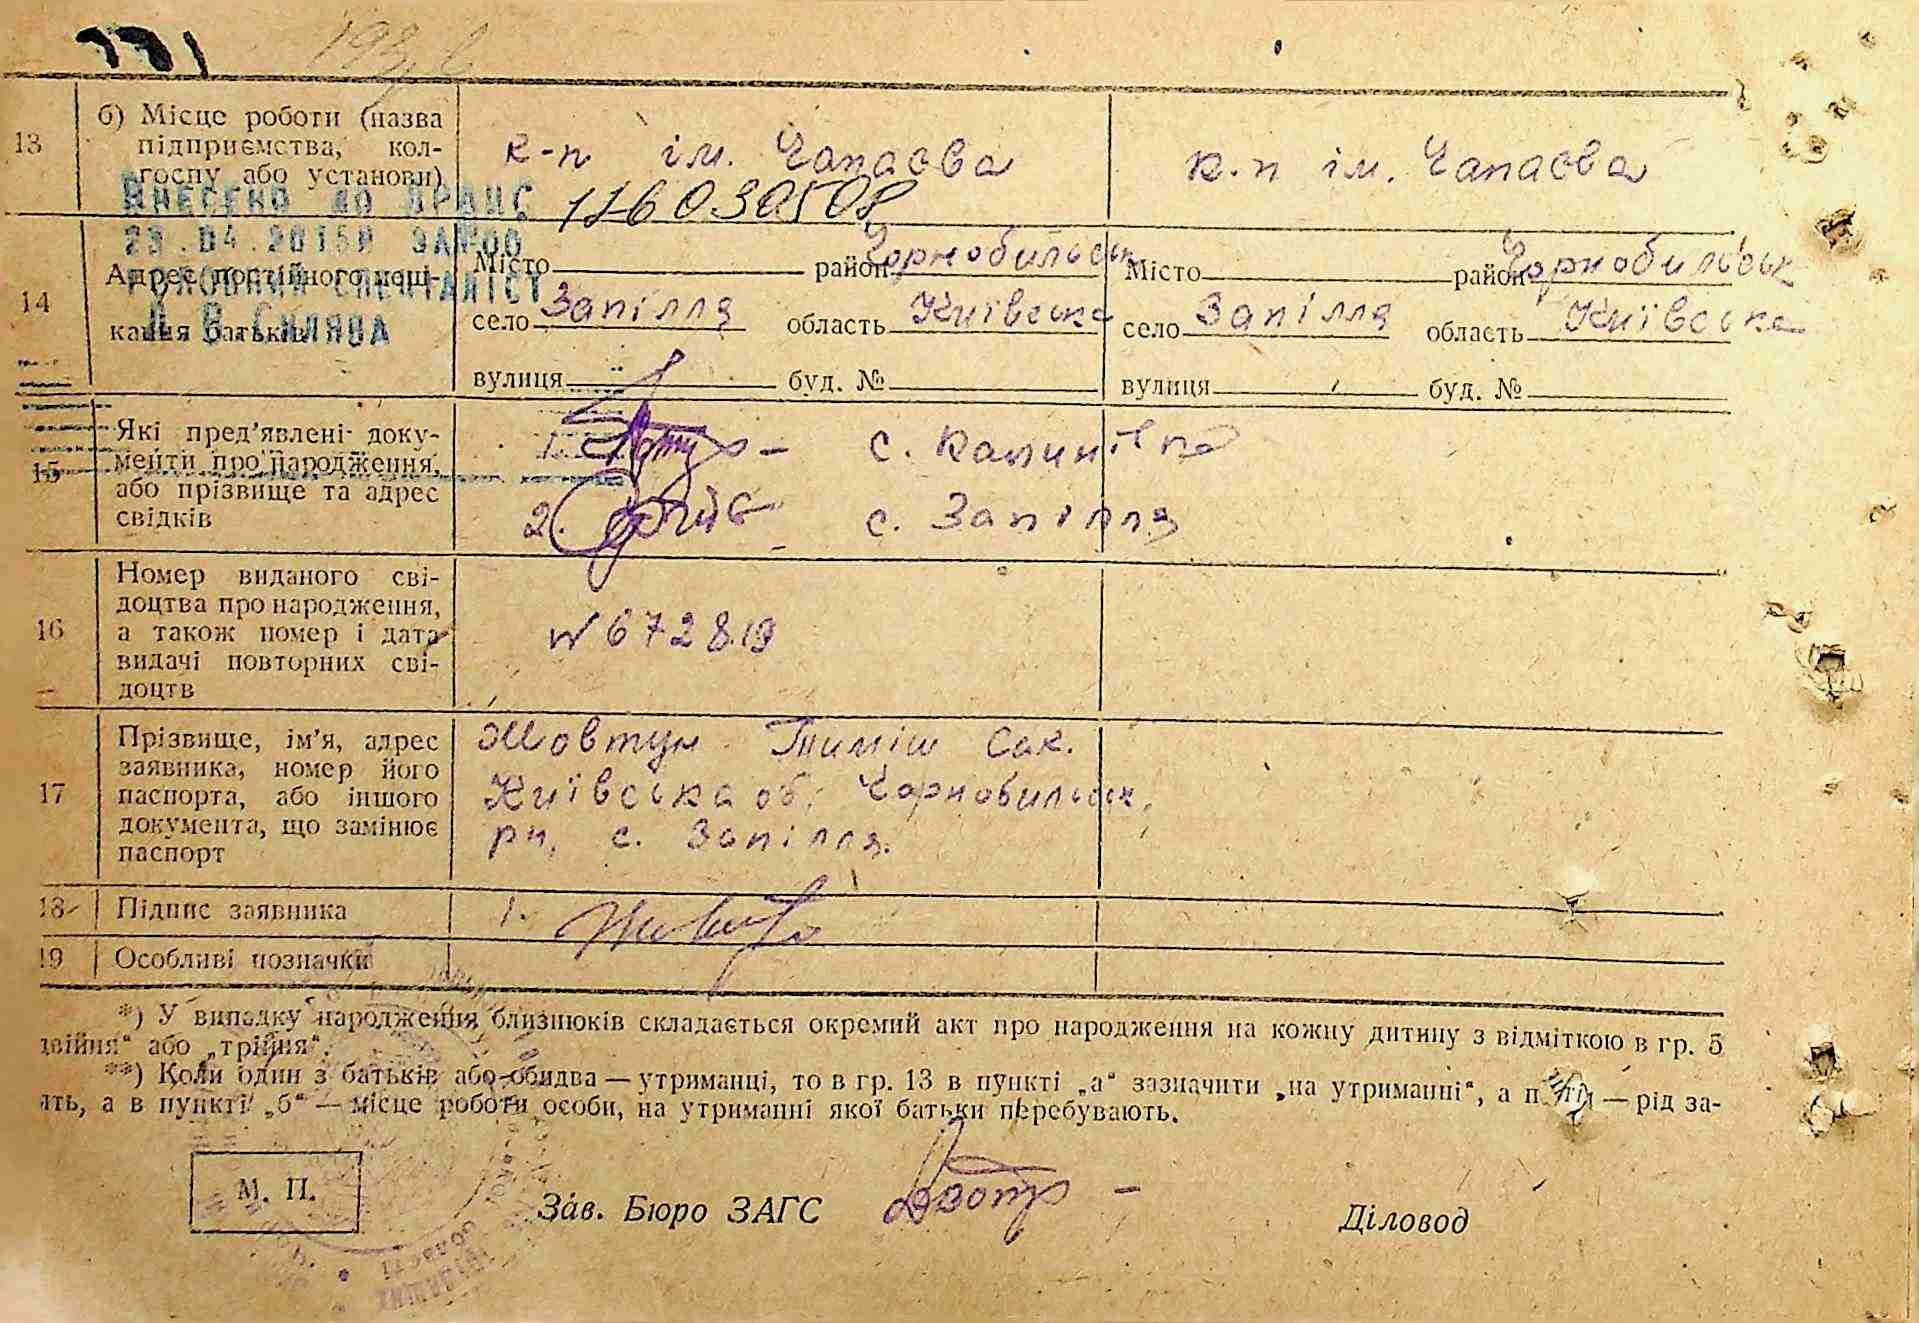 171
13 б) Місце роботи (назва
підприємства, кол-
госпу або установи)
к-п ім. Чапаєва
к.п ім. Чапаєва
ВНЕСЕНО ДО ДРАЦС
23.04.2015Р ЗА №00
116030508
ГОЛОВНИЙ СПЕЦІАЛІСТ
14 Адрес постійного меш-
кання батьків
Місто район Чорнобильськ
село Запілля область Київська
вулиця буд. №
Місто район Чорнобильськ
село Запілля область Київська
вулиця буд. №
15 Які пред'явлені доку-
менти про народження,
або прізвище та адрес
свідків
1. с. Калинівка
2. с. Запілля
16 Номер виданого сві-
доцтва про народження,
а також номер і дата
видачі повторних сві-
доцтв
N 672819
17 Прізвище, ім'я, адрес
заявника, номер його
паспорта, або іншого
документа, що замінює
паспорт
Жовтун Тиміш Сак.
Київська об, Чорнобильськ,
рн, с. Запілля.
18 Підпис заявника
1.
19 Особливі позначки
*) У випадку народження близнюків складається окремий акт про народження на кожну дитину з відміткою в гр. 5
двійня“ або „трійня“.
**) Коли один з батьків або обидва — утриманці, то в гр. 13 в пункті „а“ зазначити „на утриманні“, а — рід за-
ять, а в пункті „б“ — місце роботи особи, на утриманні якої батьки перебувають.
М. П.
Зав. Бюро ЗАГС
Діловод